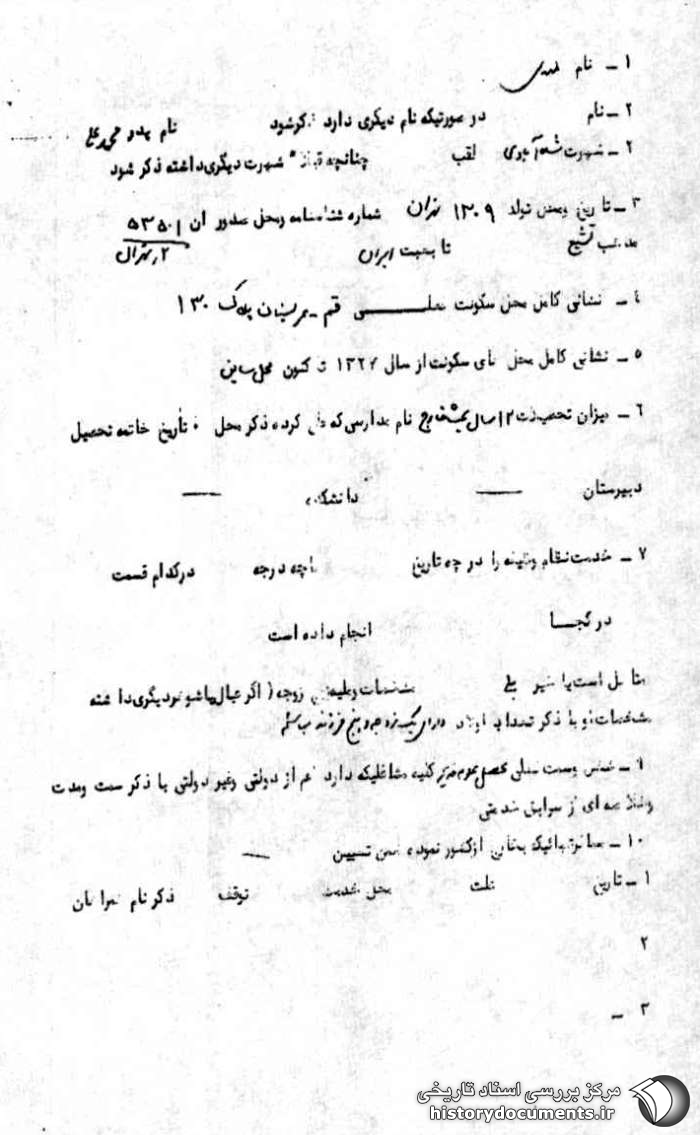 ۱ ـ نام مهدی
۲ ـ نام در صورتیکه نام دیگری دارد ذکر شود نام پدر محمدعلی
۲ ـ شهرت شاه‌آبادی لقب چنانچه قبلاً شهرت دیگری داشته ذکر شود
۳ ـ تاریخ ومحل تولد ۱۳۰۹ تهران شماره شناسنامه ومحل صدور آن ۵۳۵۰۱
مذهب تشیع تابعیت ایران ۲ تهران
۴ ـ نشانی کامل محل سکونت فعلی قم ـ پلاک ۱۳۰
۵ ـ نشانی کامل محل های سکونت از سال ۱۳۲۷ تا کنون محل سابق
۶ ـ میزان تحصیلات ۱۲ سال نام مدارسی که طی کرده ذکر محل و تاریخ خاتمه تحصیل
دبیرستان — دانشکده —
۷ ـ خدمت نظام وظیفه را در چه تاریخ باچه درجه درکدام قسمت
در کجا انجام داده است
متاهل است یا خیر بلی مشخصات زوجه ( اگر عیال یاشوهر دیگری داشته
مشخصات او با ذکر تعداد اولاد دارای یک زوجه و پنج فرزند میباشم
۹ ـ شغل وسمت فعلی محصل علوم کلیه مشاغلیکه دارد اعم از دولتی وغیر دولتی با ذکر سمت ومدت
وخلاصه ای از سوابق خدمتی
۱۰ ـ مسافرتهائیکه بخارج ازکشور نموده ضمن تعیین —
۱ ـ تاریخ علت محل خدمت توقف ذکر نام همراهان
۲
۳ ـ
مرکز بررسی اسناد تاریخی
historydocuments.ir